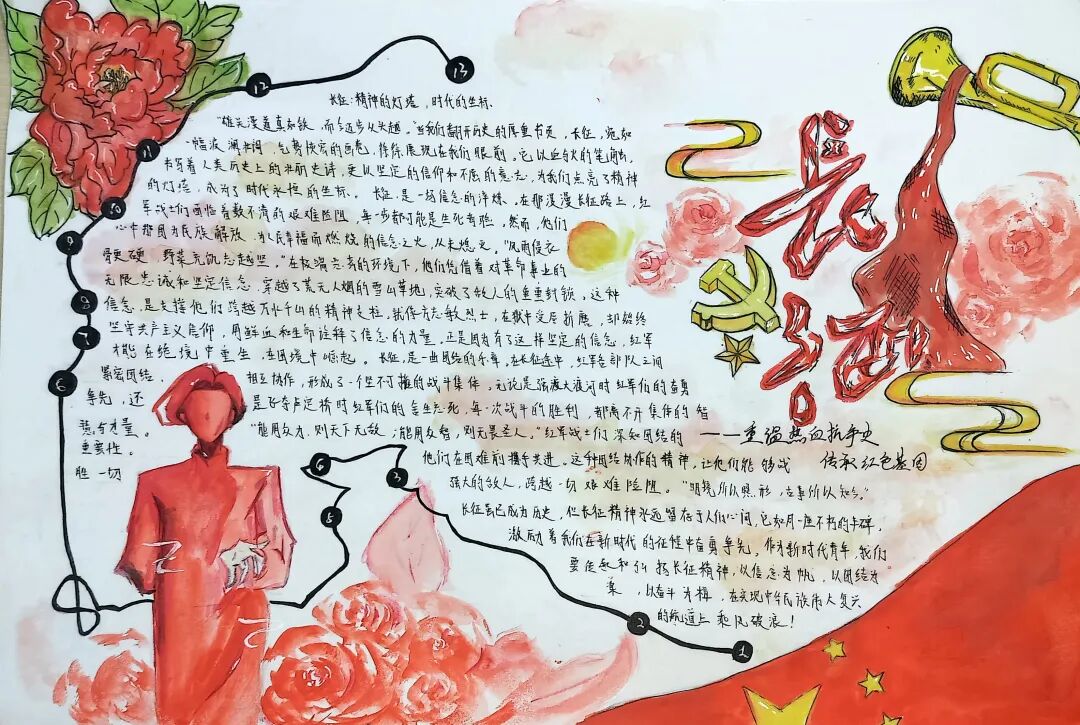 长征:精神的灯塔，时代的坐标
"雄关漫道真如铁，而今迈步从头越。"当我们翻开历史的厚重书页，长征，宛如
一幅波澜壮阔、气势恢宏的画卷，徐徐展现在我们眼前。它以血与火的笔触，
书写着人类历史上的壮丽史诗，更以坚定的信仰和不屈的意志，为我们点亮了精神
的灯塔，成为了时代永恒的坐标。长征，是一场信念的淬炼。在那漫漫长征路上，红
军战士们面临着数不清的艰难险阻，每一步都可能是生死考验，然而，他们
心中那团为民族解放、为人民幸福而燃烧的信念之火，从未熄灭。"风雨侵衣
骨更硬，野菜充饥志越坚。"在极端恶劣的环境下，他们凭借着对革命事业的
无限忠诚和坚定信念，穿越了荒无人烟的雪山草地，突破了敌人的重重封锁。这种
信念，是支撑他们跨越万水千山的精神支柱，就像方志敏烈士，在狱中受尽折磨，却始终
坚守共产主义信仰，用鲜血和生命诠释了信念的力量。正是因为有了这样坚定的信念，红军
才能在绝境中重生，在困境中崛起。长征，是一曲团结的乐章，在长征途中，红军各部队之间
紧密团结，相互协作，形成了一个坚不可摧的战斗集体，无论是强渡大渡河时红军们的奋勇
争先，还是飞夺泸定桥时红军们的舍生忘死，每一次战斗的胜利，都离不开集体的智
慧与力量。"能用众力，则天下无敌；能用众智，则无畏圣人。"红军战士们深知团结的
重要性。他们在困难前携手共进，这种团结协作的精神，让他们能够战
胜一切强大的敌人，跨越一切艰难险阻。"明镜所以照形，古事所以知今。"
长征虽已成为历史，但长征精神永远留存于人们心间，它如同一座不朽的丰碑，
激励着我们在新时代的征程中奋勇争先。作为新时代青年，我们
要传承和弘扬长征精神，以信念为帆，以团结为
桨，以奋斗为楫，在实现中华民族伟大复兴
的航道上乘风破浪！
长征
——重温热血抗争史
传承红色基因
13
12
11
10
9
8
7
6
5
4
3
2
1